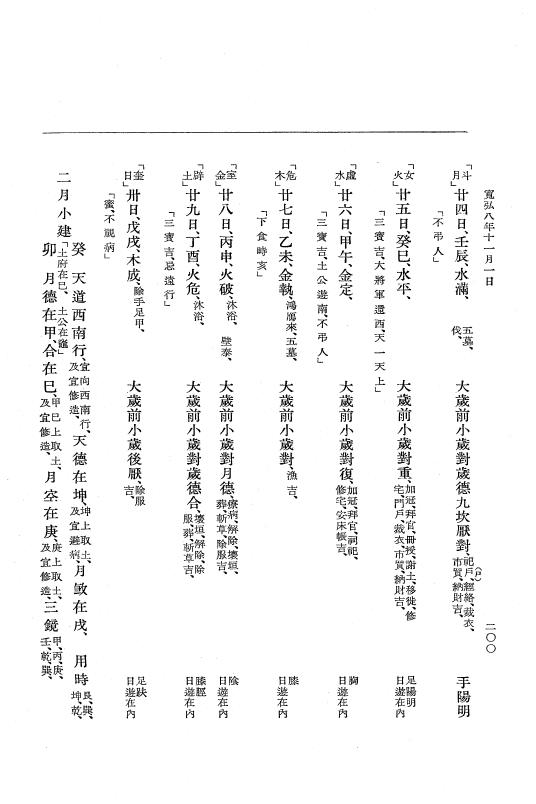 寛弘八年十一月一日
二〇〇
「斗月」廿四日、壬辰、水滿、五墓、伐、大歲前小歲對歲德九坎厭對、祀戶、(戸)經絡、裁衣、市買、納財吉、手陽明
「不弔人」
「女火」廿五日、癸巳、水平、大歲前小歲對重、加冠、拜官、冊授、謝土、移徙、修宅、門戶、裁衣、市買、納財吉、足陽明日遊在內
「三寳吉、大將軍還西、天一天上」
「虛水」廿六日、甲午、金定、大歲前小歲對復、加冠、拜官、祠祀、修宅、安床帳吉、胸日遊在內
「三寳吉、土公遊南、不弔人」
「危木」廿七日、乙未、金執、鴻鴈來、五墓、大歲前小歲對、漁吉、膝日遊在內
「下食時亥」
「室金」廿八日、丙申、火破、沐浴、大歲前小歲對月德、療病、解除、壞垣、葬、斬草、除服吉、陰日遊在內
「辟土」廿九日、丁酉、火危、沐浴、大歲前小歲對歲德合、壞垣、解除、除服、葬、斬草吉、膝脛日遊在內
「三寳吉、忌遠行」
「奎日」卅日、戊戌、木成、除手足甲、大歲前小歲後厭、除服吉、足趺日遊在內
「蜜、不視病」
二月小建癸卯「土府在巳、土公在竈」
天道西南行、宜向西南行、及宜修造、天德在坤、坤上取土、及宜避病、月敓在戌、用時艮、巽、坤、乾、
月德在甲、合在巳、甲巳上取土、及宜修造、月空在庚、庚上取土、及宜修造、三鏡甲、丙、庚、壬、乾、巽、